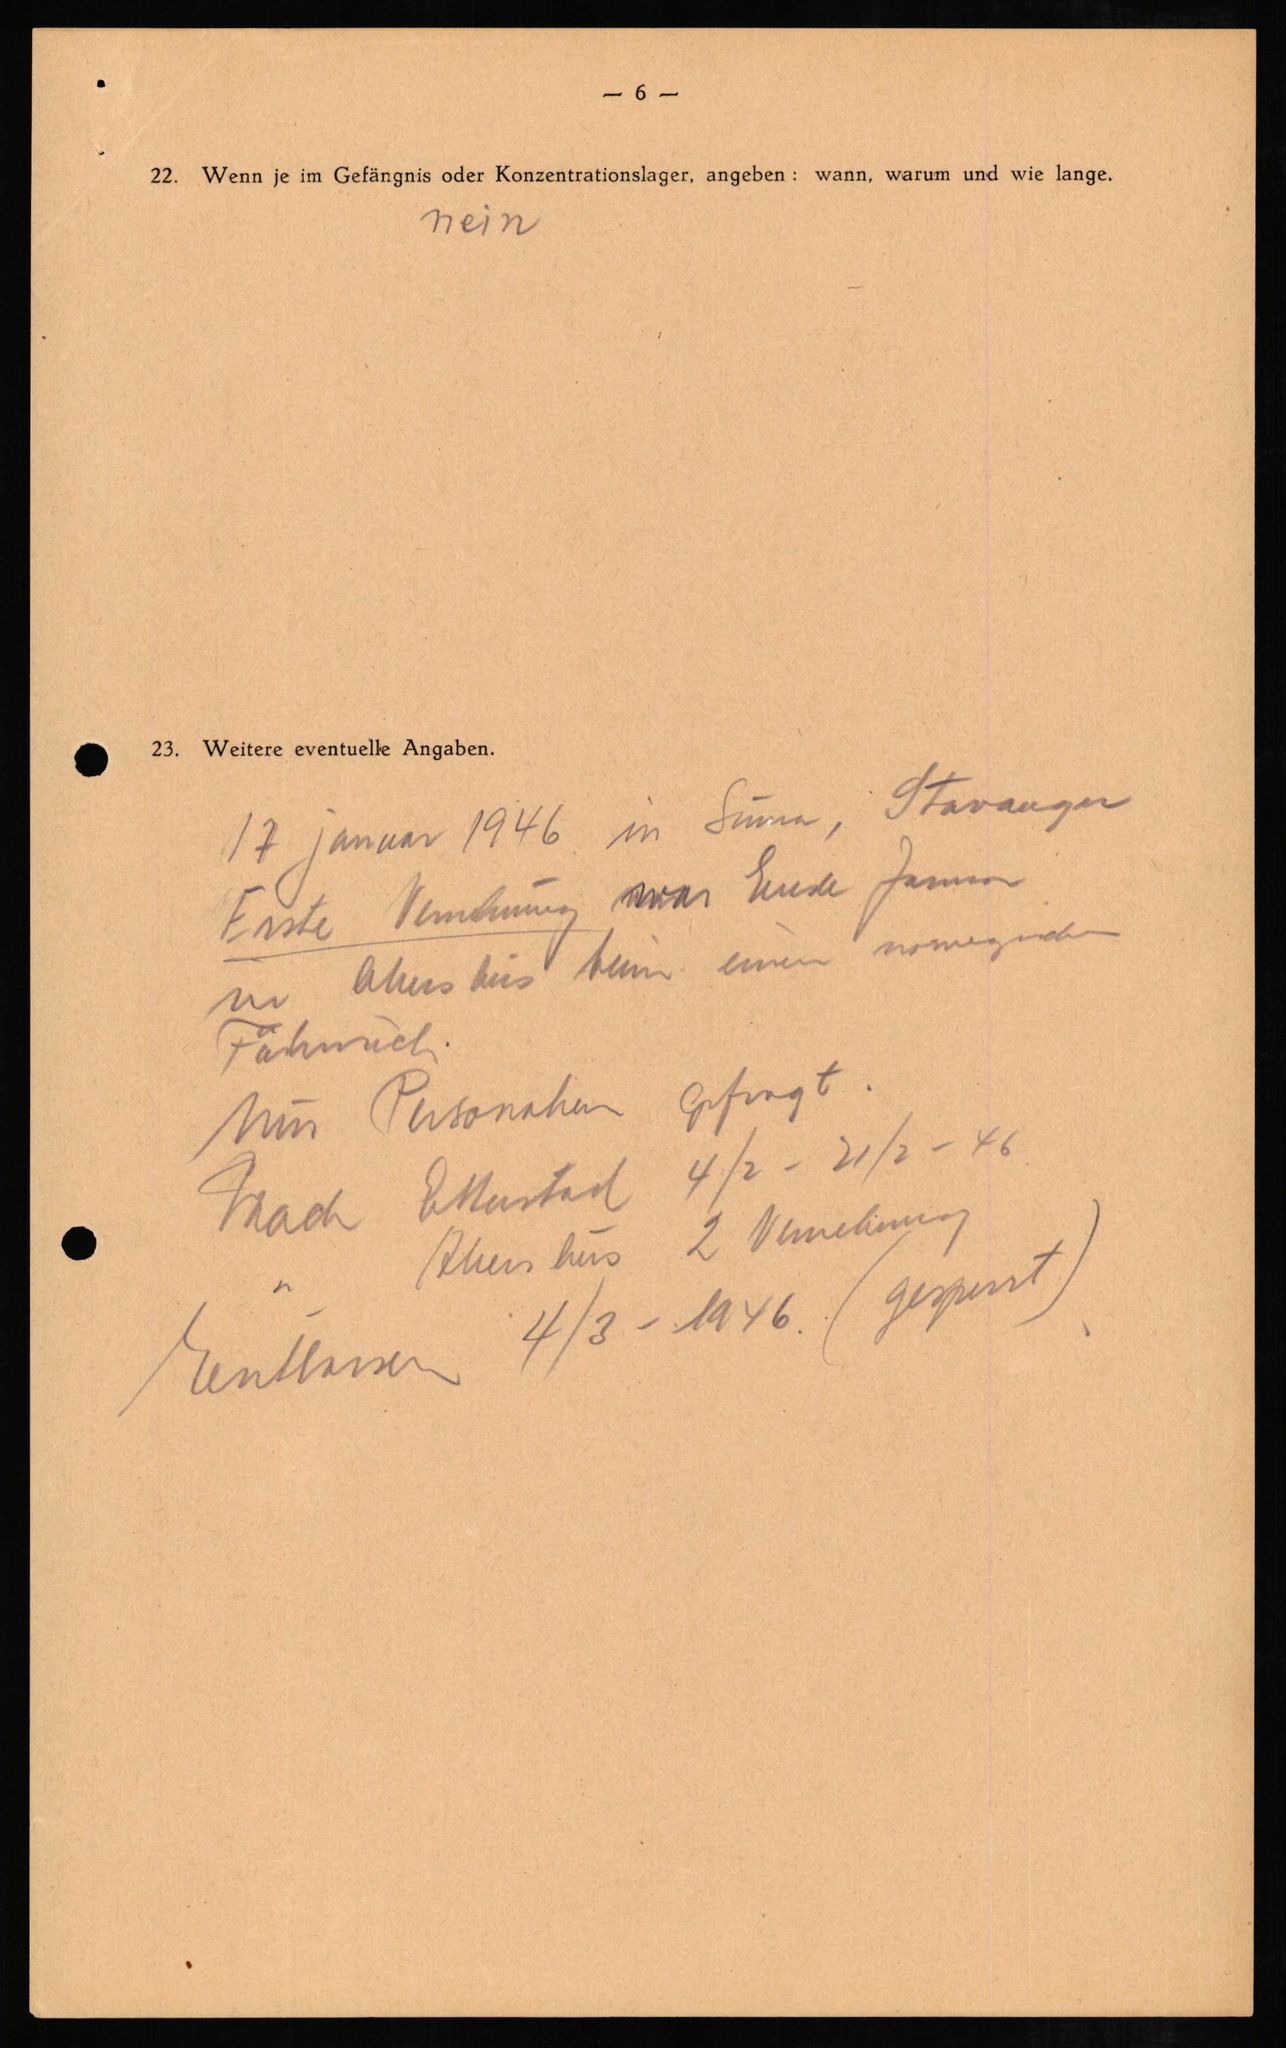 — 6 —
22. Wenn je im Gefängnis oder Konzentrationslager, angeben : wann, warum und wie lange.
nein
23. Weitere eventuelle Angaben.
17 januar 1946 in Stavanger
Erste Vernehmung war Ende Januar
in Akershus beim einen norwegischen
Fähnrich.
Nur Personalien gefragt.
Nach Etterstad 4/2 - 21/2 - 46
" Akershus 2 Vernehmung
Entlassen 4/3 - 1946. (gesperrt)